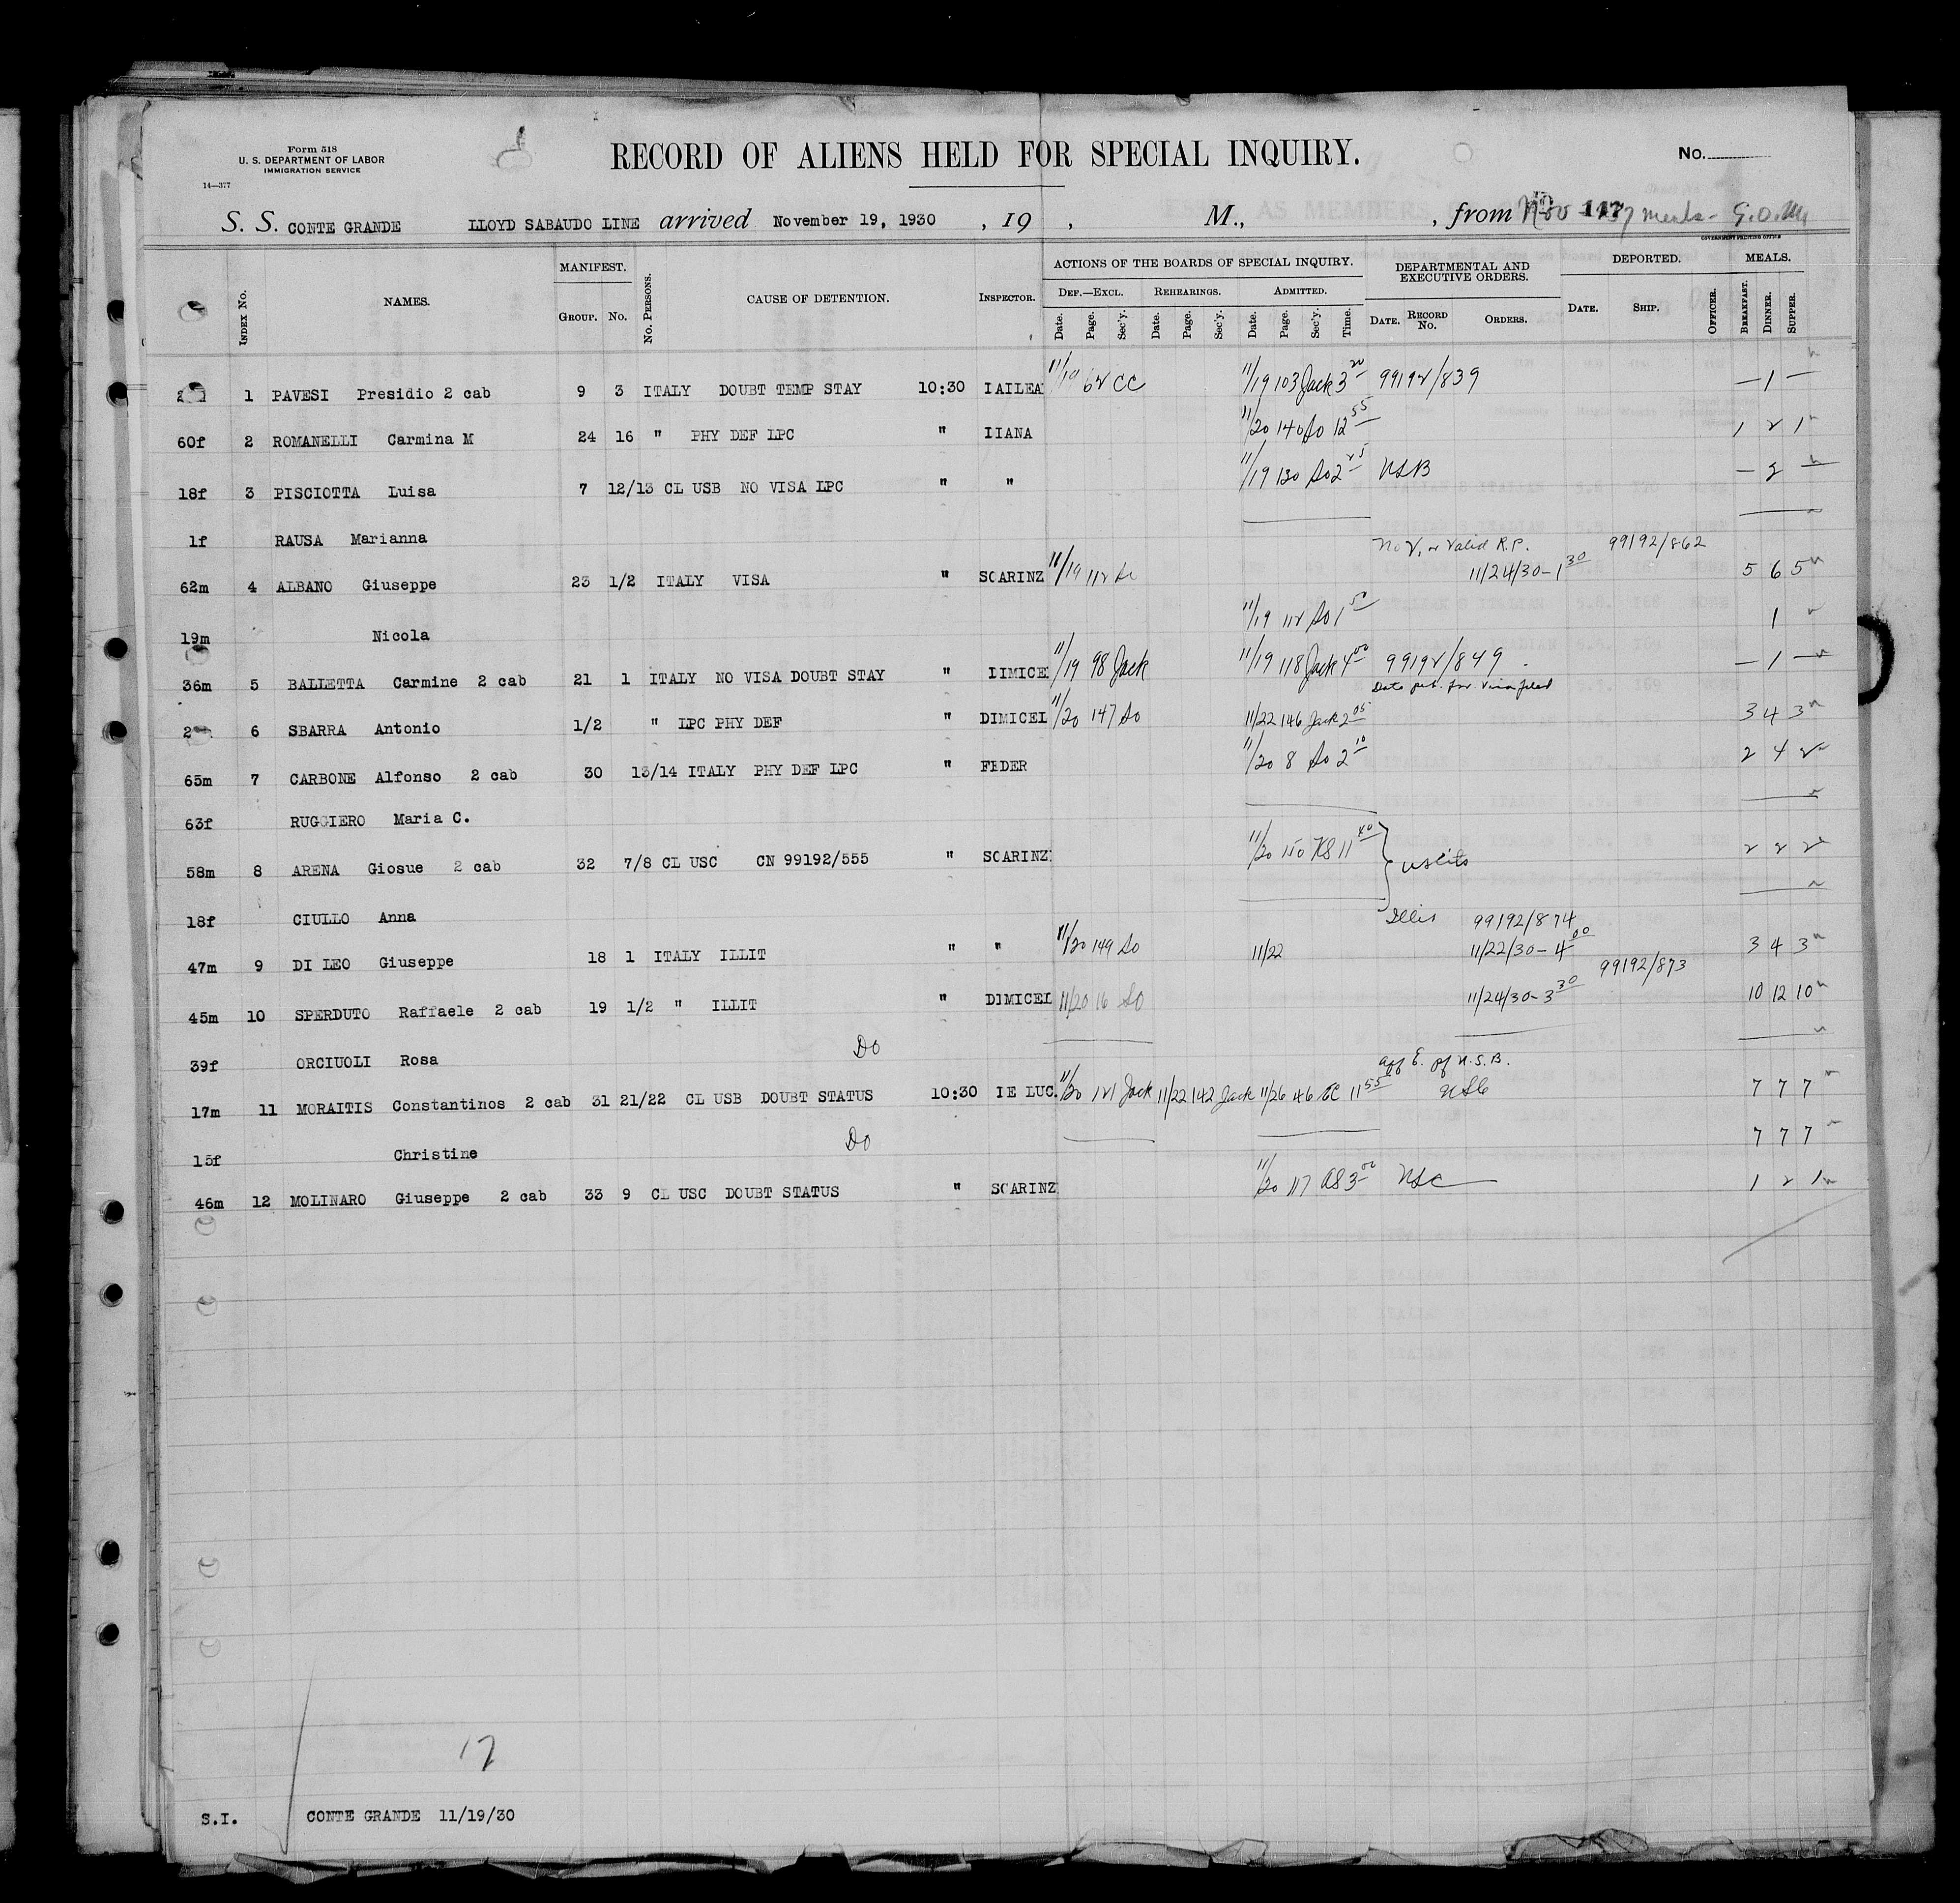 Form 518
U. S. DEPARTMENT OF LABOR
IMMIGRATION SERVICE
14—377
RECORD OF ALIENS HELD FOR SPECIAL INQUIRY.
No.
S. S. CONTE GRANDE LLOYD SABAUDO LINE arrived November 19, 1930 , 19 , M., , from 147 meals -
GOVERNMENT PRINTING OFFICE
INDEX No. NAMES. MANIFEST. GROUP. No. No. PERSONS. CAUSE OF DETENTION. INSPECTOR. ACTIONS OF THE BOARDS OF SPECIAL INQUIRY. DEPARTMENTAL AND EXECUTIVE ORDERS. DEPORTED. MEALS.
DEF.—EXCL. REHEARINGS. ADMITTED.
Date. Page. Sec'y. Date. Page. Sec'y. Date. Page. Sec'y. Time. DATE. RECORD No. ORDERS. DATE. SHIP. OFFICER. BREAKFAST. DINNER. SUPPER.
1 PAVESI Presidio 2 cab 9 3 ITALY DOUBT TEMP STAY 10:30 IAILEA 11/19 62 CC 11/19 103 Jack 3 20 99192/839 — 1 —
60f 2 ROMANELLI Carmina M 24 16 " PHY DEF LPC " IIANA 11/20 140 So 12 55 1 2 1
18f 3 PISCIOTTA Luisa 7 12/13 CL USB NO VISA LPC " " 11/19 130 So 2 25 USB — 2 —
1f RAUSA Marianna
No V. or valid R.P. 99192/862
62m 4 ALBANO Giuseppe 23 1/2 ITALY VISA " SCARINZ 11/19 112 So 11/24/30 - 1 30 5 6 5
19m Nicola 11/19 112 So 1 50 1
36m 5 BALLETTA Carmine 2 cab 21 1 ITALY NO VISA DOUBT STAY " DIMICE 11/19 98 Jack 11/19 118 Jack 4 00 99192/849 — 1 —
6 SBARRA Antonio 1/2 " LPC PHY DEF " DIMICEL 11/20 147 So 11/22 146 Jack 2 05 3 4 3
65m 7 CARBONE Alfonso 2 cab 30 13/14 ITALY PHY DEF LPC " FEDER 11/20 8 So 2 10 2 4 2
63f RUGGIERO Maria C.
58m 8 ARENA Giosue 2 cab 32 7/8 CL USC CN 99192/555 " SCARINZ 11/20 150 KS 11 40 2 2 2
18f CIULLO Anna
99192/874
47m 9 DI LEO Giuseppe 18 1 ITALY ILLIT " " 11/20 149 So 11/22 11/22/30 - 4 00 3 4 3
99192/873
45m 10 SPERDUTO Raffaele 2 cab 19 1/2 " ILLIT " DIMICEL 11/20 16 So 11/24/30 - 3 30 10 12 10
39f ORCIUOLI Rosa
Do
17m 11 MORAITIS Constantinos 2 cab 31 21/22 CL USB DOUBT STATUS 10:30 IE LUC. 11/20 121 Jack 11/22 142 Jack 11/26 46 11 55 7 7 7
15f Christine Do 7 7 7
46m 12 MOLINARO Giuseppe 2 cab 33 9 CL USC DOUBT STATUS " SCARINZ 11/20 117 3 00 USC 1 2 1
17
S.I. CONTE GRANDE 11/19/30